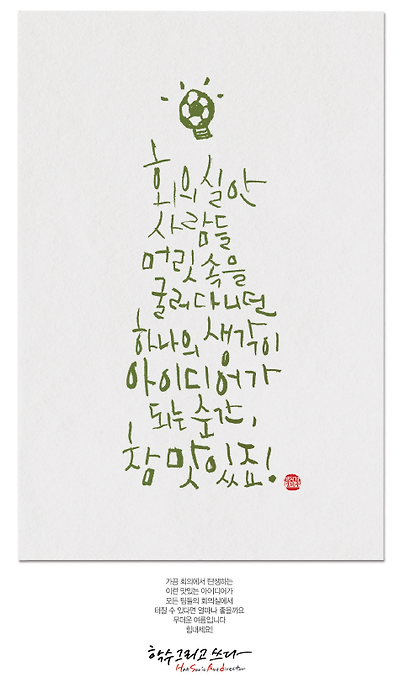 회의실 안
사람들
머릿속을
굴러다니던
하나의 생각이
아이디어가
되는 순간,
참 맛있죠!
가끔 회의에서 탄생하는
이런 맛있는 아이디어가
모든 팀들의 회의실에서
터질 수 있다면 얼마나 좋을까요
무더운 여름입니다
힘내세요!
학수그리고 쓰다
HakSoo is Art director